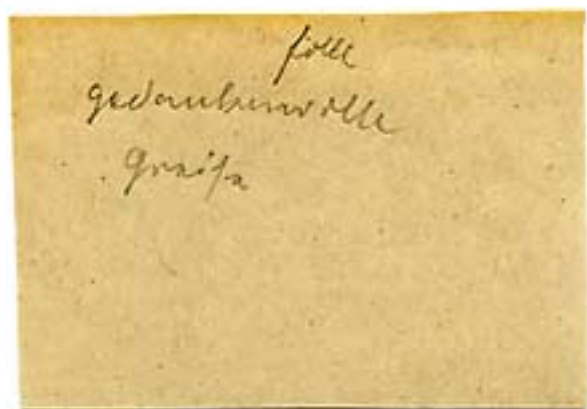 fölle
gedankenvolle
Greise